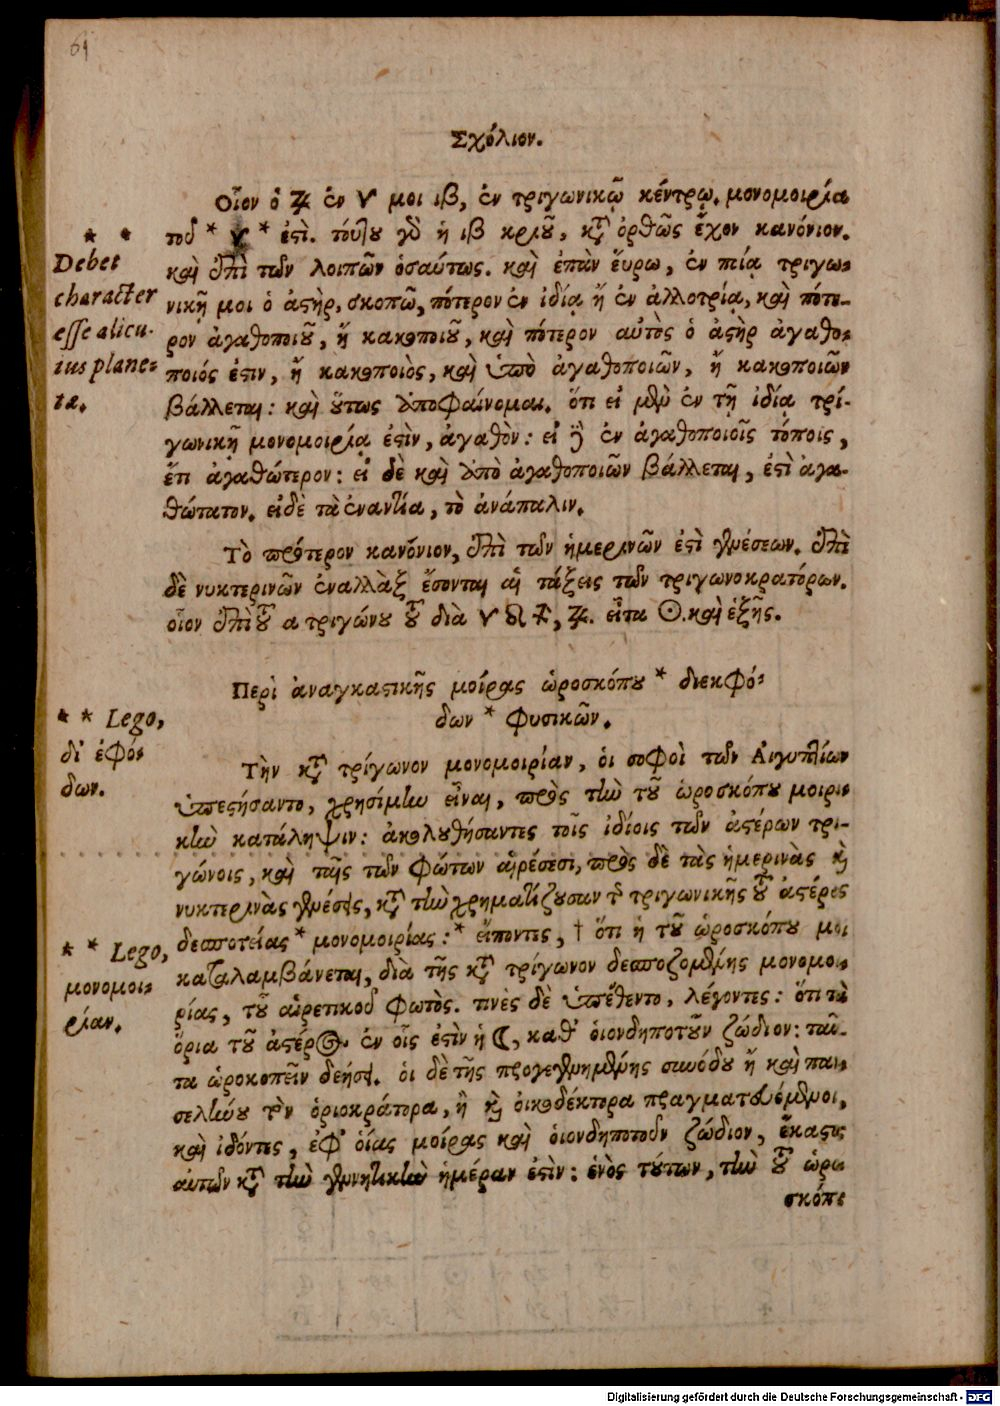 61
Σχόλιον.
Οἷον ὁ ♃ ἐν ♈ μοι ιβ, ἐν τριγωνικῷ κέντρῳ. μονομοιρία
τοῦ * ♈ * ἐστί. τούτου γὸ ἡ ιβ κριοῦ, κτ ὀρθῶς ἔχον κανόνιον.
καὶ ἐπὶ τῶν λοιπῶν ὁσαύτως. καὶ ἐπὰν ἕυρω, ἐν ποίᾳ τριγω-
νικῇ μοι ὁ ἀστὴρ, σκοπῶ, πότερον ἐν ἰδίᾳ ἢ ἐν ἀλλοτρίᾳ, καὶ πότε-
ρον ἀγαθοποιοῦ, ἢ κακοποιοῦ, καὶ πότερον αὐτὸς ὁ ἀστὴρ ἀγαθο-
ποιός ἐστιν, ἢ κακοποιὸς, καὶ ὑπὸ ἀγαθοποιῶν, ἢ κακοποιῶν
βάλλεται: καὶ οὕτως ἀποφαίνομαι. ὅτι εἰ μὲν ἐν τῇ ἰδίᾳ τρι-
γωνικῇ μονομοιρίᾳ ἐστὶν, ἀγαθὸν: εἰ ἢ ἐν ἀγαθοποιοῖς τόποις,
ἔτι ἀγαθώτερον: εἰ δὲ καὶ ἀπὸ ἀγαθοποιῶν βάλλεται, ἐστὶ ἀγα-
θώτατον. εἰδὲ τὰ ἐναντία, τὸ ἀνάπαλιν.
Τὸ πρότερον κανόνιον, ἐπὶ τῶν ἡμερινῶν ἐστὶ γενέσεων. ἐπὶ
δὲ νυκτερινῶν ἐναλλὰξ ἔσονται αἱ τάξεις τῶν τριγωνοκρατόρων.
οἷον ἐπὶ τοῦ α τριγώνου τοῦ διὰ ♈ ♌ ♐, ♃. εἶτα ☉. καὶ ἑξῆς.
Περὶ ἀναγκαστικῆς μοίρας ὡροσκόπου * διεκφό-
δων * φυσικῶν.
Τὴν κτ τρίγωνον μονομοιρίαν, οἱ σοφοὶ τῶν Αἰγυπτίων
ὑπεστήσαντο, χρησίμην εἶναι, πρὸς τὴν τοῦ ὡροσκόπου μοιρι-
κὴν κατάληψιν: ἀκολουθήσαντες τοῖς ἰδίοις τῶν ἀστέρων τρι-
γώνοις, καὶ ταῖς τῶν φώτων αἱρέσεσι, πρὸς δὲ τὰς ἡμερινὰς καὶ
νυκτερινὰς γενέσεις, κτ τὴν χρηματίζουσαν τῆς τριγωνικῆς τοῦ ἀστέρος
δεσποτείας * μονομοιρίας: * εἴποντες, † ὅτι ἡ τοῦ ὡροσκόπου μοι
καταλαμβάνεται, διὰ τῆς κτ τρίγωνον δεσποζομένης μονομοι-
ρίας, τοῦ αἱρετικοῦ φωτὸς. τινὲς δὲ ὑπέθεντο, λέγοντες: ὅτι τὰ
ὅρια τοῦ ἀστέρος ἐν οἷς ἐστὶν ἡ ☾, καθ' ὁιονδηποτοῦν ζώδιον: ταῦ-
τα ὡροκοπεῖν δεήσει. οἱ δὲ τῆς προγεγενημένης συνόδου ἢ καὶ παν-
σελήνου τὸν ὁριοκράτορα, ἢ καὶ οἰκοδέκτορα πραγματευόμενοι,
καὶ ἰδόντες, ἐφ' ὁίας μοίρας καὶ ὁιονδηποτοῦν ζώδιον, ἕκαστος
αὐτῶν κτ τὴν γενητικὴν ἡμέραν ἐστὶν: ἑνὸς τούτων, τὴν τοῦ ὡρο
σκόπε
* *
Debet
character
esse alicu-
ius plane-
tæ.
* * Lego,
δι' ἐφό-
δων.
* * Lego,
μονομοι-
ρίαν.
Digitalisierung gefördert durch die Deutsche Forschungsgemeinschaft - DFG